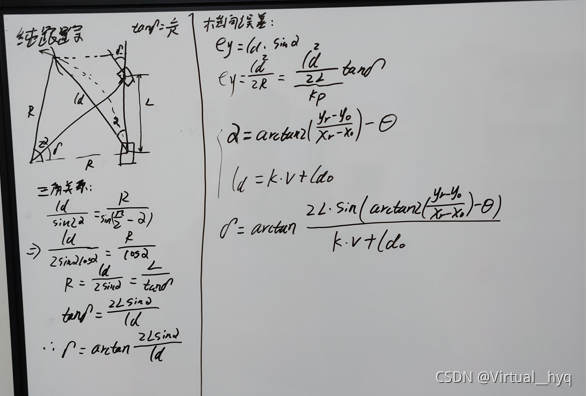 纯跟踪
tanδ = L/R
δ
R
ld
α
L
2α
δ
R
三角关系:
ld/sin2α = R/sin(π/2 - α)
⇒ ld/2sinαcosα = R/cosα
R = ld/2sinα = L/tanδ
tanδ = 2Lsinα/ld
∴ δ = arctan 2Lsinα/ld
横向误差:
ey = ld·sinα
ey = ld²/2R = ld²/2L tanδ
kp
α = arctan2(yr-yo/xr-xo) - θ
ld = k·v + ldo
δ = arctan 2L·sin(arctan2(yr-yo/xr-xo)-θ)/k·v + ldo
CSDN @Virtual__hyq